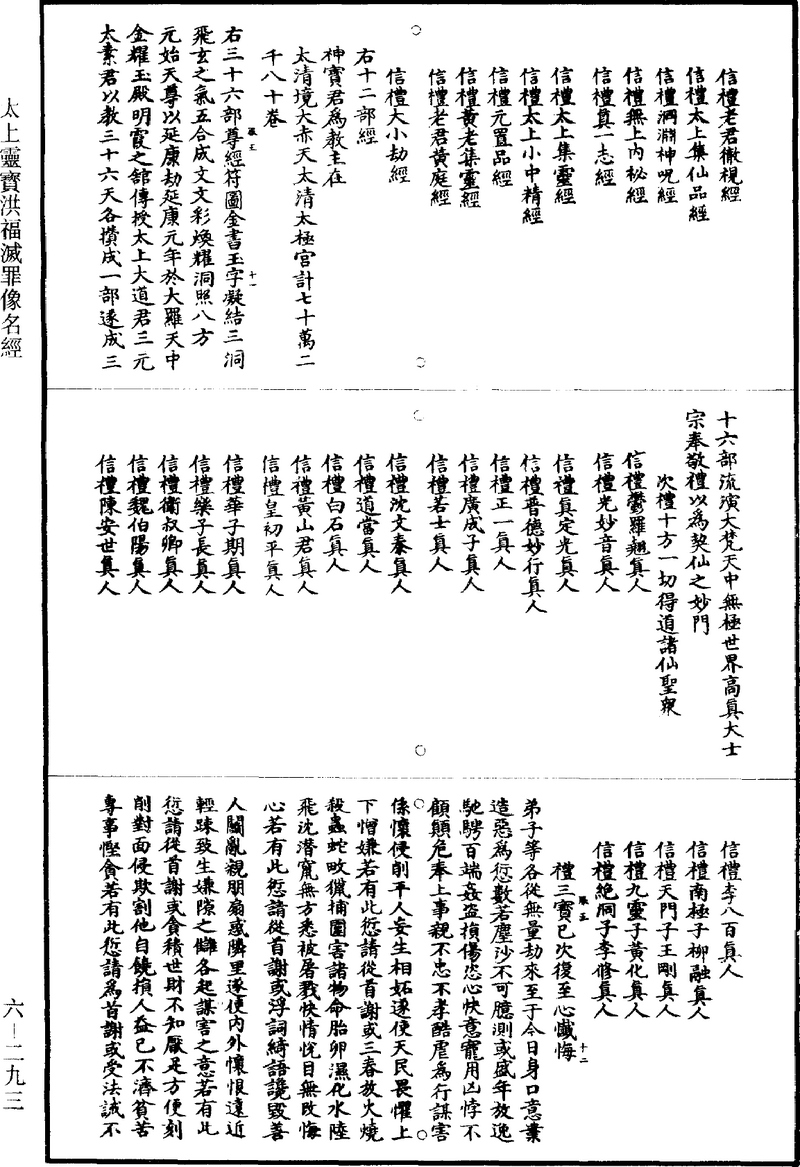 太上靈寶洪福滅罪像名經
六-二九三
信禮老君徹視經
信禮太上集仙品經
信禮洞淵神呪經
信禮無上內秘經
信禮真一志經
信禮太上集靈經
信禮太上小中精經
信禮元置品經
信禮黃老集靈經
信禮老君黃庭經
信禮大小劫經
右十二部經
神寶君爲教主在
太清境大赤天太清太極宮計七十萬二
千八十卷
右三十六部尊經符圖金書玉字凝結三洞
飛玄之氣五合成文文彩煥耀洞照八方
元始天尊以延康劫延康元年於大羅天中
金耀玉殿明霞之館傳授太上大道君三元
太素君以教三十六天各攢成一部遂成三
十六部流演大梵天中無極世界高真大士
宗奉敬禮以爲契仙之妙門
次禮十方一切得道諸仙聖衆
信禮鬱羅翹真人
信禮光妙音真人
信禮真定光真人
信禮普德妙行真人
信禮正一真人
信禮廣成子真人
信禮若士真人
信禮沈文泰真人
信禮道當真人
信禮白石真人
信禮黃山君真人
信禮皇初平真人
信禮華子期真人
信禮樂子長真人
信禮衛叔卿真人
信禮魏伯陽真人
信禮陳安世真人
信禮李八百真人
信禮南極子柳融真人
信禮天門子王剛真人
信禮九靈子黃化真人
信禮絕洞子李修真人
禮三寶已次復至心懺悔
弟子等各從無量劫來至于今日身口意業
造惡爲愆數若塵沙不可臆測或盛年放逸
馳騁百端姦盜損傷恣心快意寵用凶悖不
顧顛危奉上事親不忠不孝酷虐爲行謀害
係懷侵削平人妄生相妬遂使天民畏懼上
下憎嫌若有此愆請從首謝或三春放火燒
殺蟲蛇畋獵捕圍害諸物命胎卵濕化水陸
飛沈潛窟無方悉被屠戮快情悅目無改悔
心若有此愆請從首謝或浮詞綺語讒毀善
人鬬亂親朋扇惑隣里遂使內外懷恨遠近
輕疎致生嫌隙之讎各起謀害之意若有此
愆請從首謝或貪積世財不知厭足方便刻
削對面侵欺割他自饒損人益己不濟貧苦
專事慳貪若有此愆請爲首謝或受法誡不